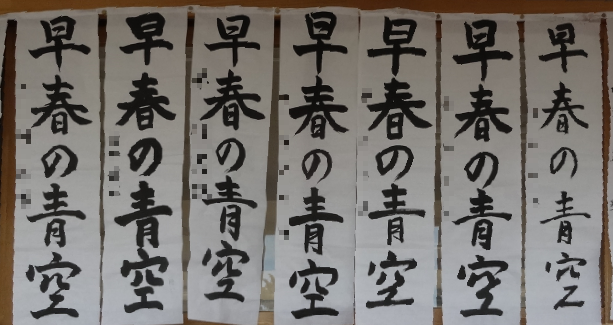 早春の青空
早春の青空
早春の青空
早春の青空
早春の青空
早春の青空
早春の青空